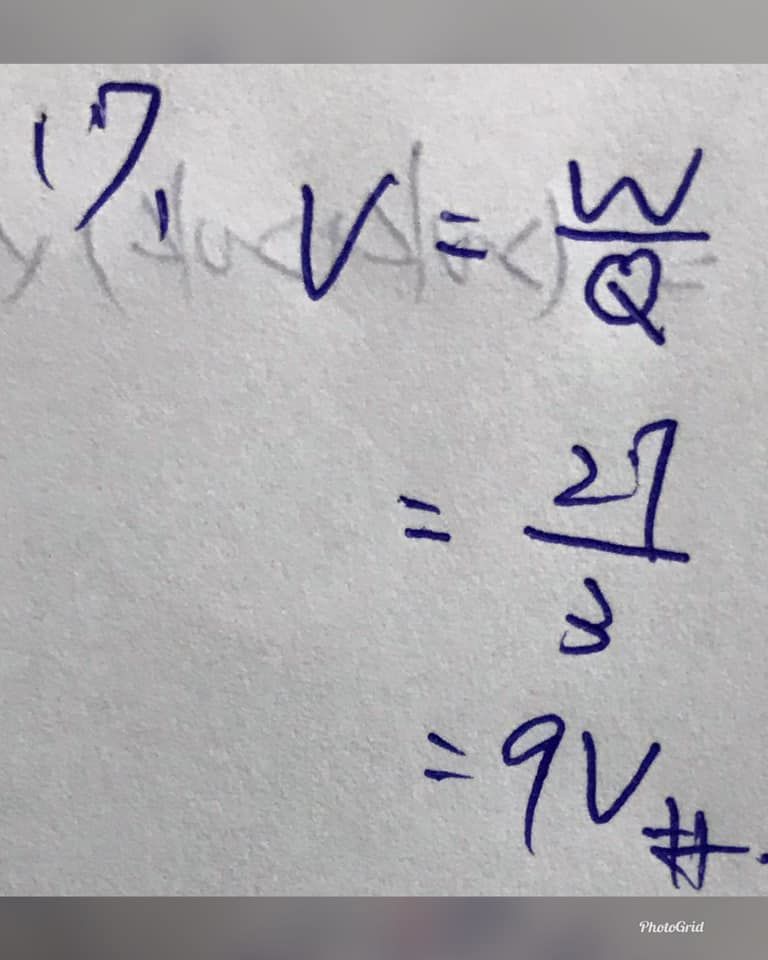 17, V = W/Q
= 27/3
= 9V #.
PhotoGrid